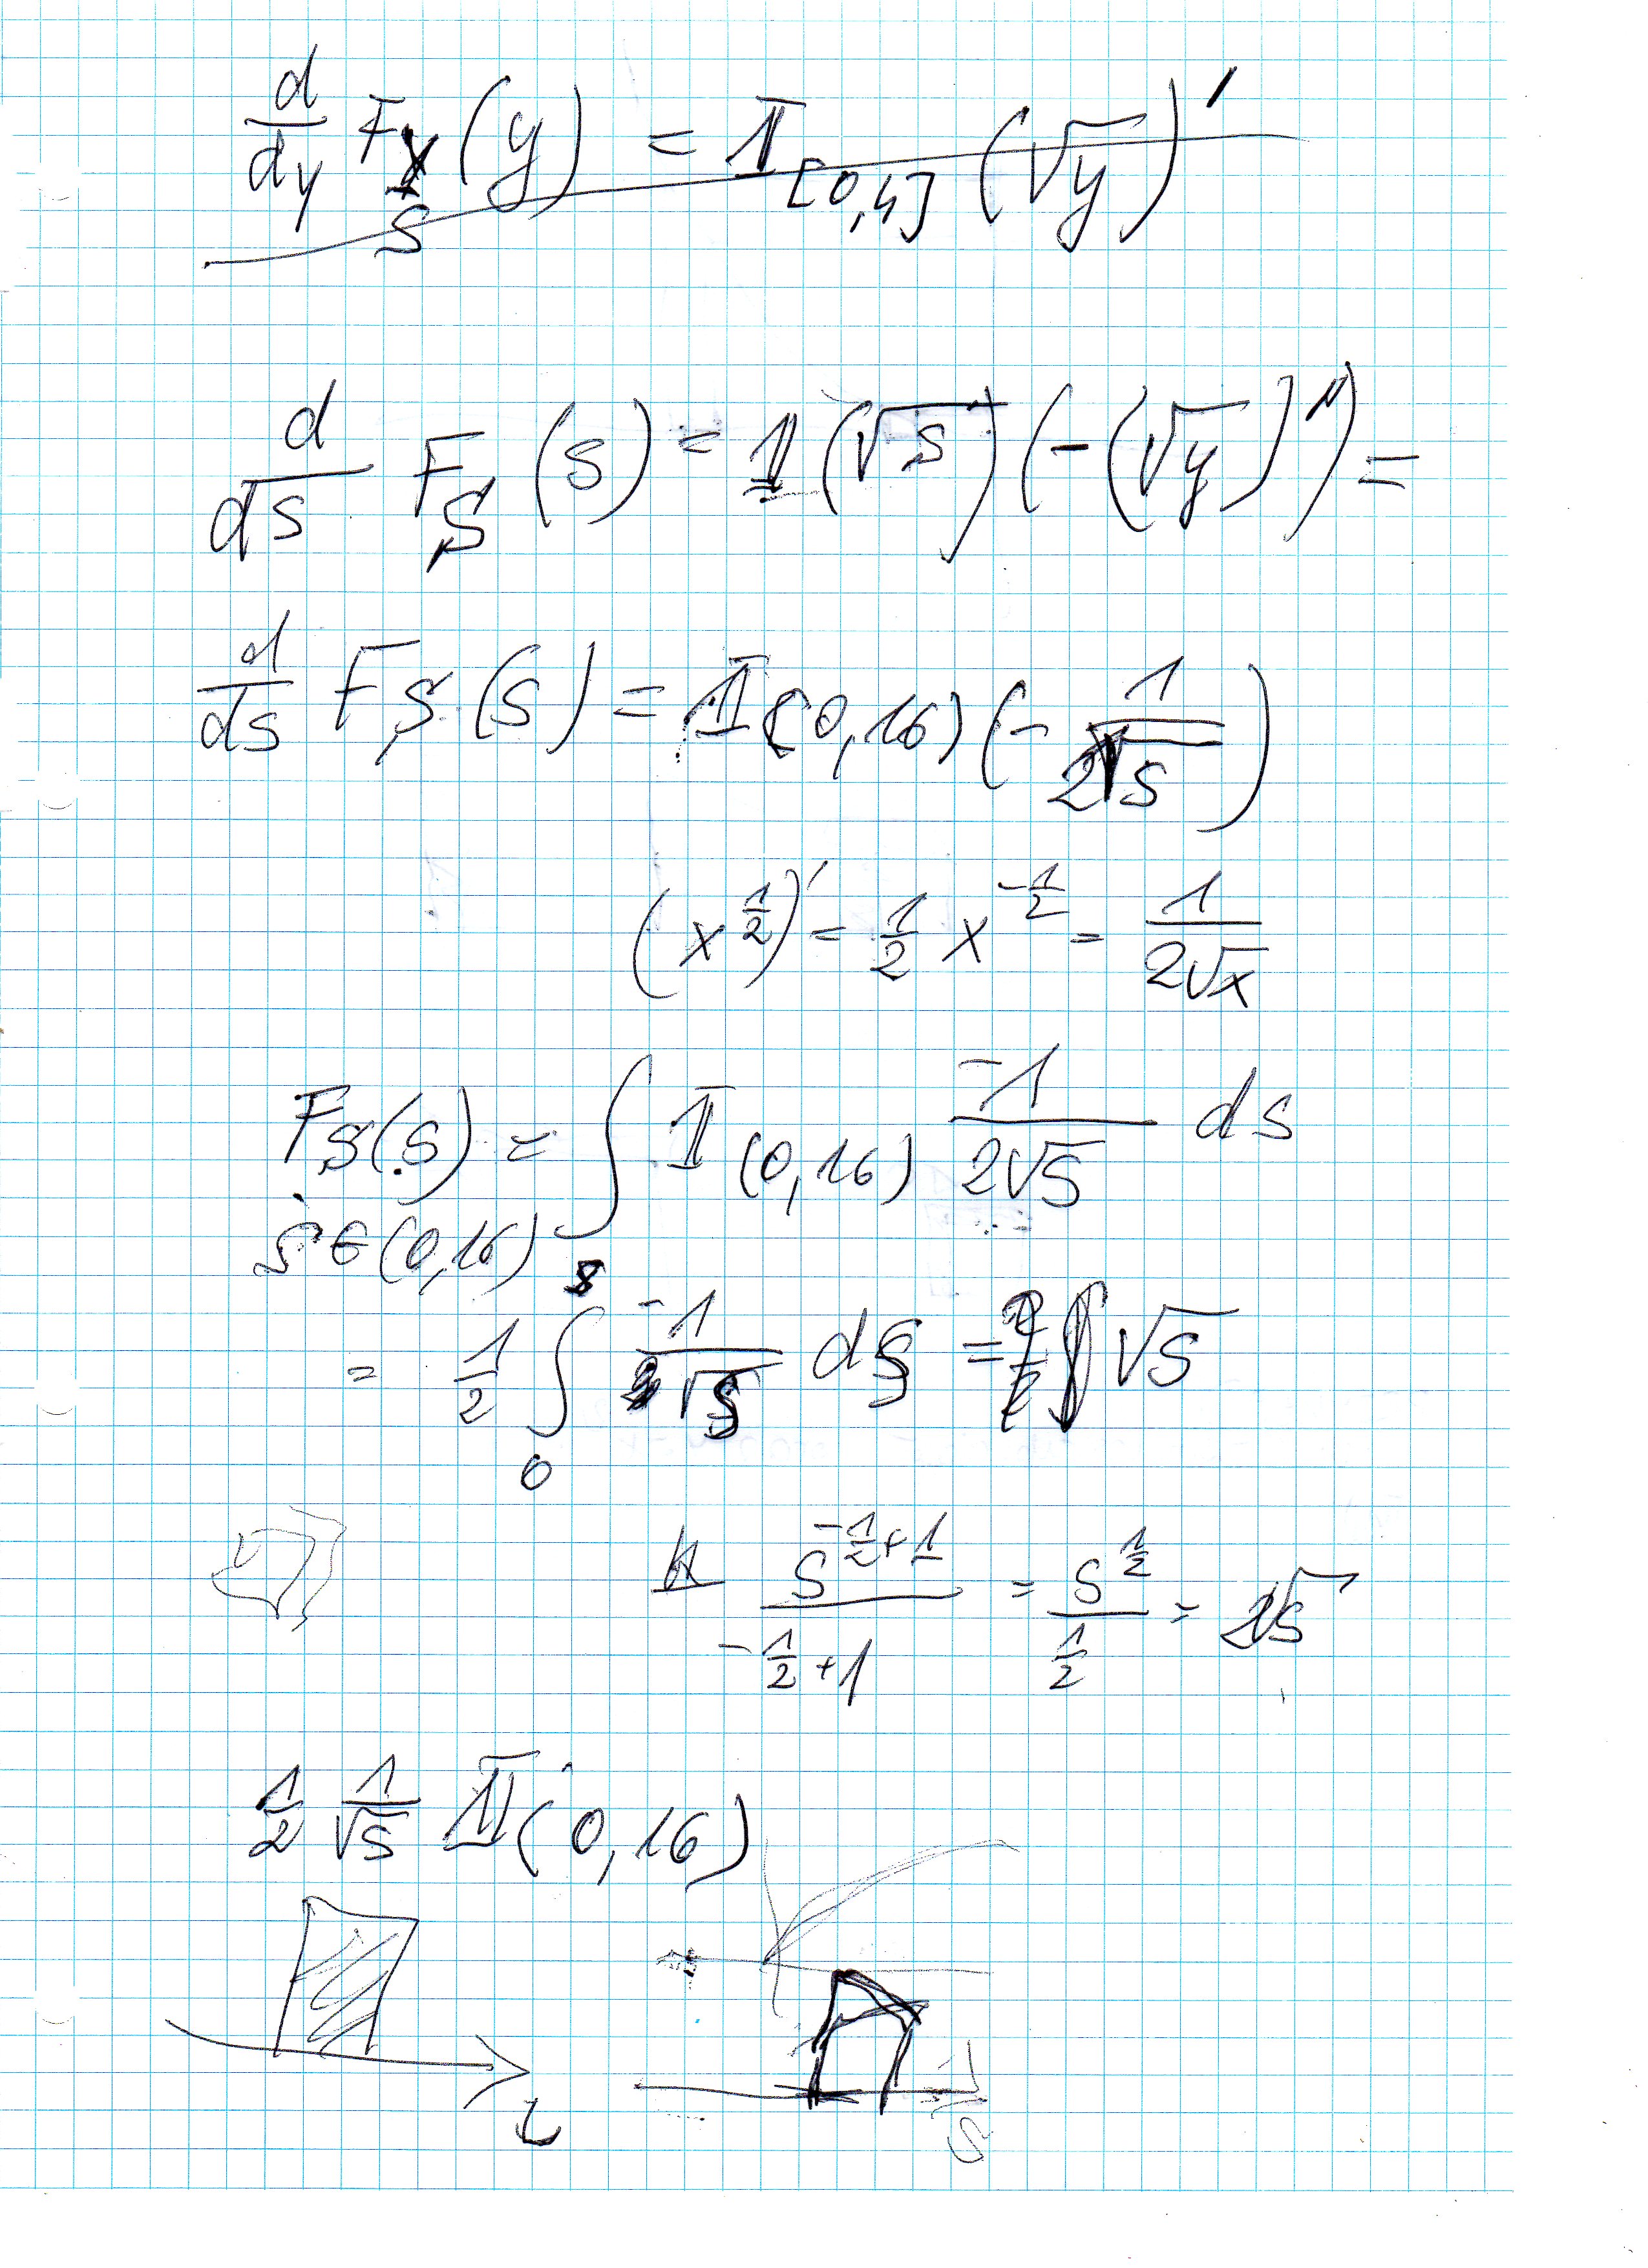 d/dy F_S(y) = 𝟙_[0,4] (√y)'
d/ds F_S(s) = 𝟙(√s)(-(√y)') =
d/ds F_S(s) = 𝟙(0,16)(- 1/(2√s))
(x^(1/2))' = 1/2 x^(-1/2) = 1/(2√x)
F_S(s) = ∫ 𝟙(0,16) -1/(2√s) ds
s ∈ (0,16)
= 1/2 ∫_0^s -1/√s ds = √s
s^(-1/2+1)/(-1/2+1) = s^(1/2)/(1/2) = 2√s
1/2 1/√s 𝟙(0,16)
L
S